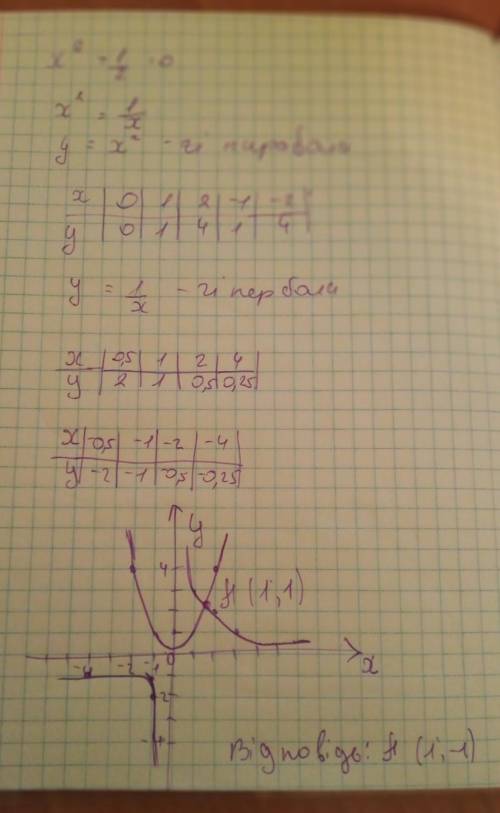 x² = 1/x = 0
x² = 1/x
y = x² -
x | 0 | 1 | 2 | -1 | -2
y | 0 | 1 | 4 | 1 | 4
y = 1/x - гіпербола
x | 0,5 | 1 | 2 | 4
y | 2 | 1 | 0,5 | 0,25
x | -0,5 | -1 | -2 | -4
y | -2 | -1 | -0,5 | -0,25
y
4
A (1;1)
-4 -2 -1 0 x
-2
-4
Відповідь: A (1;-1)